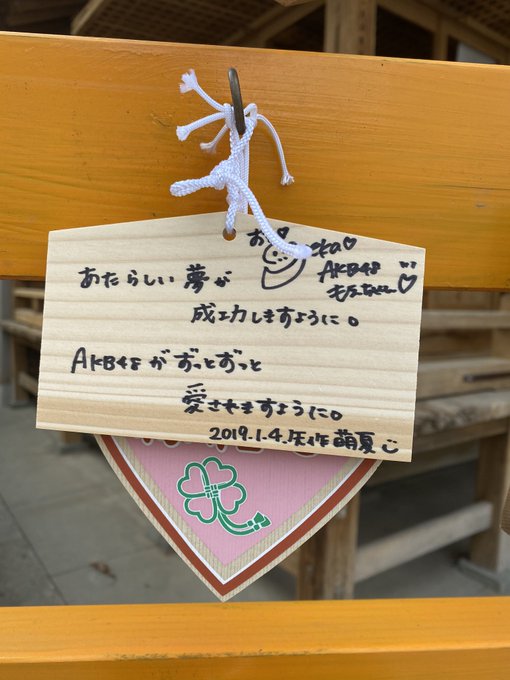 AKB48
あたらしい夢が
成功しますように。
AKB48がずっとずっと
愛されますように。
2019.1.4.矢作萌夏